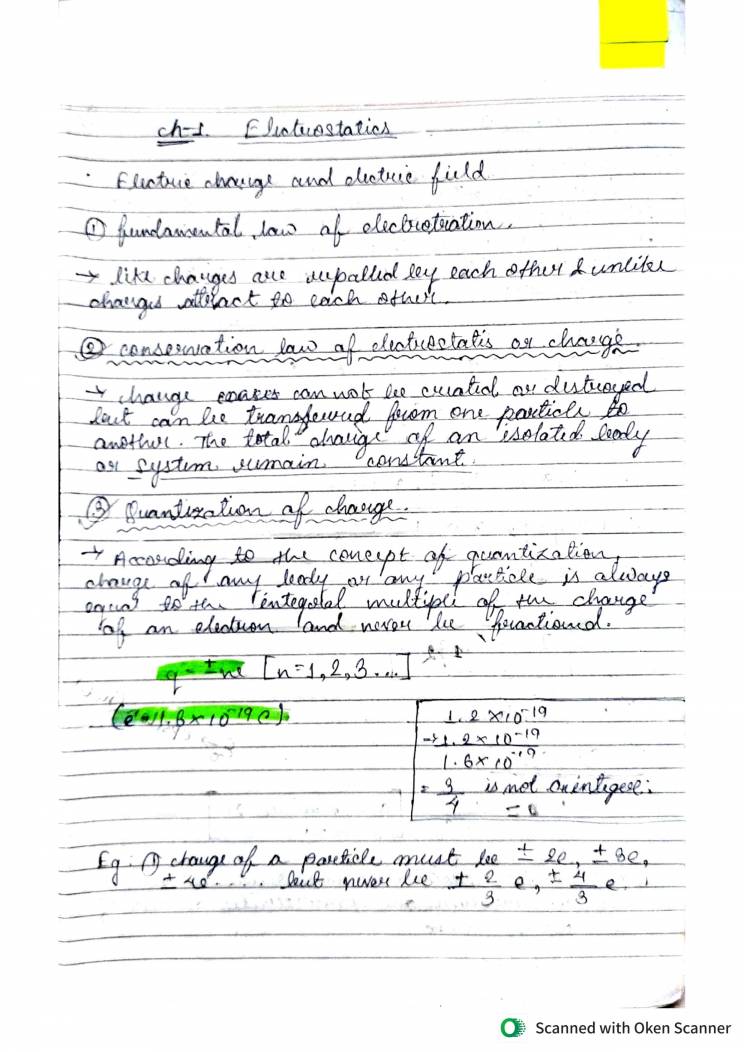 ch-1. Electrostatics
· Electric charge and electric field
① fundamental law of electrostration.
→ like charges are repalled by each other & unlike
charges attract to each other.
② conservation law of electrostatis or charge.
→ charge can not be created or destroyed
but can be transferred from one particle to
another. The total charge of an isolated body
or system remain constant.
③ Quantization of charge.
→ According to the concept of quantization,
charge of any body or any particle is always
equal to the integral multiple of the charge
of an electron and never be fractioned.
q = ±ne [n=1,2,3....]
(e = 1.6×10⁻¹⁹C).
1.2×10⁻¹⁹
→ 1.2×10⁻¹⁹
1.6×10⁻¹⁹
= 3/4 is not an integere:
= 0
Eg. ① charge of a particle must be ± 2e, ± 3e,
± 4e ..... but never be ± 2/3 e, ± 4/3 e.
Scanned with Oken Scanner